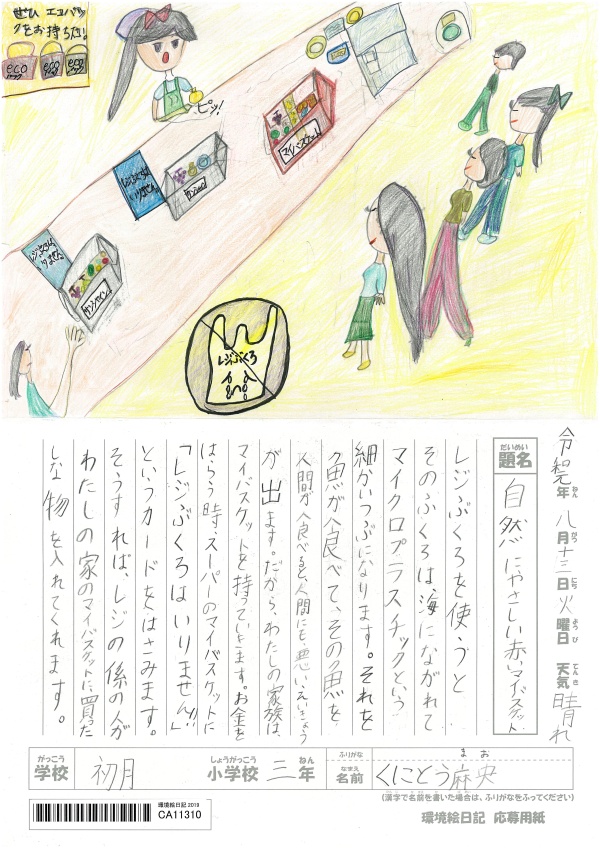 ぜひエコバッ
グをお持ち下さい!
eco
eco
eco
ピッ!
マイバスケット
レジぶくろは
いりません
レジぶくろ
令和元年 八月十三日 火曜日 天気 晴れ
ねん がつ にち ようび てんき
だいめい
題名
自然にやさしい赤いマイバスケット
レジぶくろを使うと
そのふくろは海にながれて
マイクロプラスチックという
細かいつぶになります。それを
魚が食べて、その魚を
人間が食べると、人間にも悪いえいきょう
が出ます。だから、わたしの家族は、
マイバスケットを持っていきます。お金を
はらう時、スーパーのマイバスケットに
「レジぶくろはいりません!!」
というカードをはさみます。
そうすれば、レジの係の人が
わたしの家のマイバスケットに、買った
しな物を入れてくれます。
がっこう しょうがっこう ねん ふりがな ま お
学校 初月 小学校 三年 なまえ 名前 くにとう麻央
(漢字で名前を書いた場合は、ふりがなをふってください)
環境絵日記 2019
CA11310
環境絵日記 応募用紙